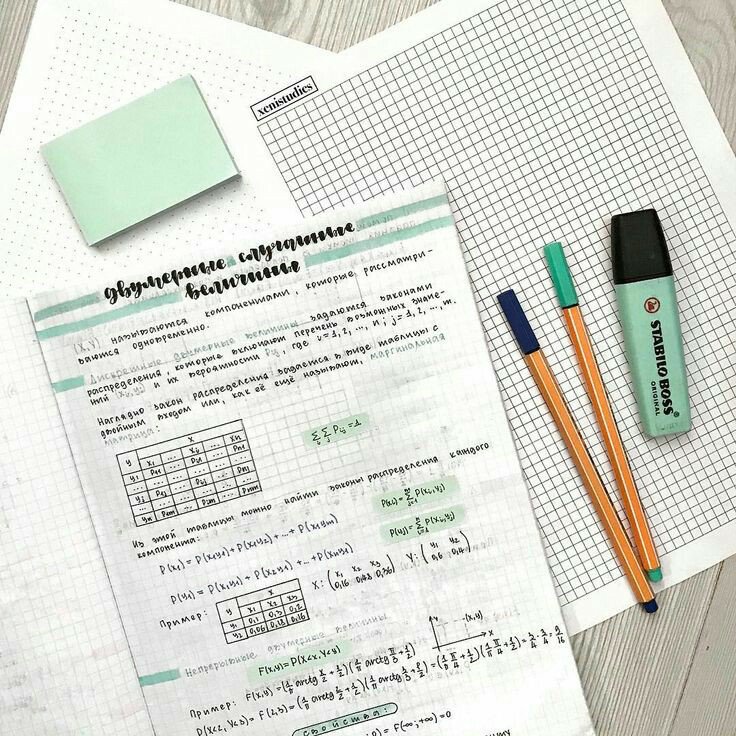 xenistudies
STABILO BOSS
ORIGINAL
двумерные случайные
величины
(X,Y) называются компонентами, которые рассматри-
ваются одновременно.
Дискретные двумерные величины задаются законами
распределения, которые включают перечень возможных значе-
ний (xi, yj) и их вероятности Pij, где i=1,2,...,n; j=1,2,...,m.
Наглядно закон распределения задается в виде таблицы с
двойным входом или, как её ещё называют, маргинальная
матрица:
y X
x1 ... xj ... xn
y1 P11 ... Pj1 ... Pn1
... ... ... ... ... ...
yj ... ... Pij ... ...
... ... ... ... ... ...
ym ... ... Pim ... Pnm
∑i ∑j Pij = 1
Из этой таблицы можно найти законы распределения каждого
компонента:
P(xi) = ∑ P(xi, yj)
P(yj) = ∑ P(xi, yj)
P(x1) = P(x1y1) + P(x1y2) + ... + P(x1ym)
P(y1) = P(x1y1) + P(x2y1) + ... + P(xny1)
Пример:
y X
x1 x2 x3
y1 0,1 0,3 0,2
y2 0,06 0,18 0,16
X: (x1 x2 x3
0,16 0,48 0,36)
Y: (y1 y2
0,6 0,4)
Непрерывные двумерные величины
F(x,y) = P(X<x, Y<y)
y
(x,y)
x
Пример: F(x,y) = (1/π arctg x/2 + 1/2)(1/π arctg y/3 + 1/2)
P(X<2, Y<3) = F(2;3) = (1/π arctg 2/2 + 1/2)(1/π arctg 3/3 + 1/2) = (1/π π/4 + 1/2)(1/π π/4 + 1/2) = 3/4 · 3/4 = 9/16
свойства:
F(-∞;+∞) = 0